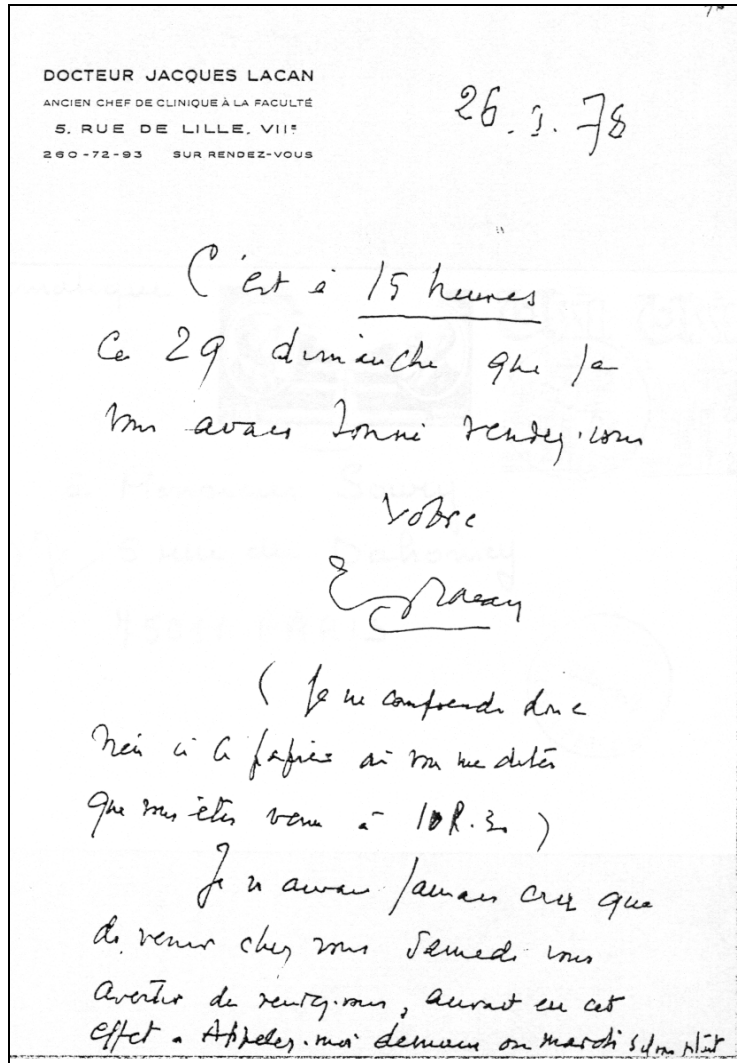 DOCTEUR JACQUES LACAN
ANCIEN CHEF DE CLINIQUE À LA FACULTÉ
5, RUE DE LILLE, VIIE
260-72-93 SUR RENDEZ-VOUS
26. I. 78
C'est à 15 heures
Ce 29 dimanche que je
vous avais donné rendez-vous
Votre
Lacan
(Je ne comprends donc
rien à ce papier où vous me dites
que vous êtes venu à 10h.30)
Je n'aurais jamais cru que
de venir chez vous Samedi vous
avertir du rendez-vous, aurait eu cet
effet. Appelez-moi demain ou mardi s'il vous plaît